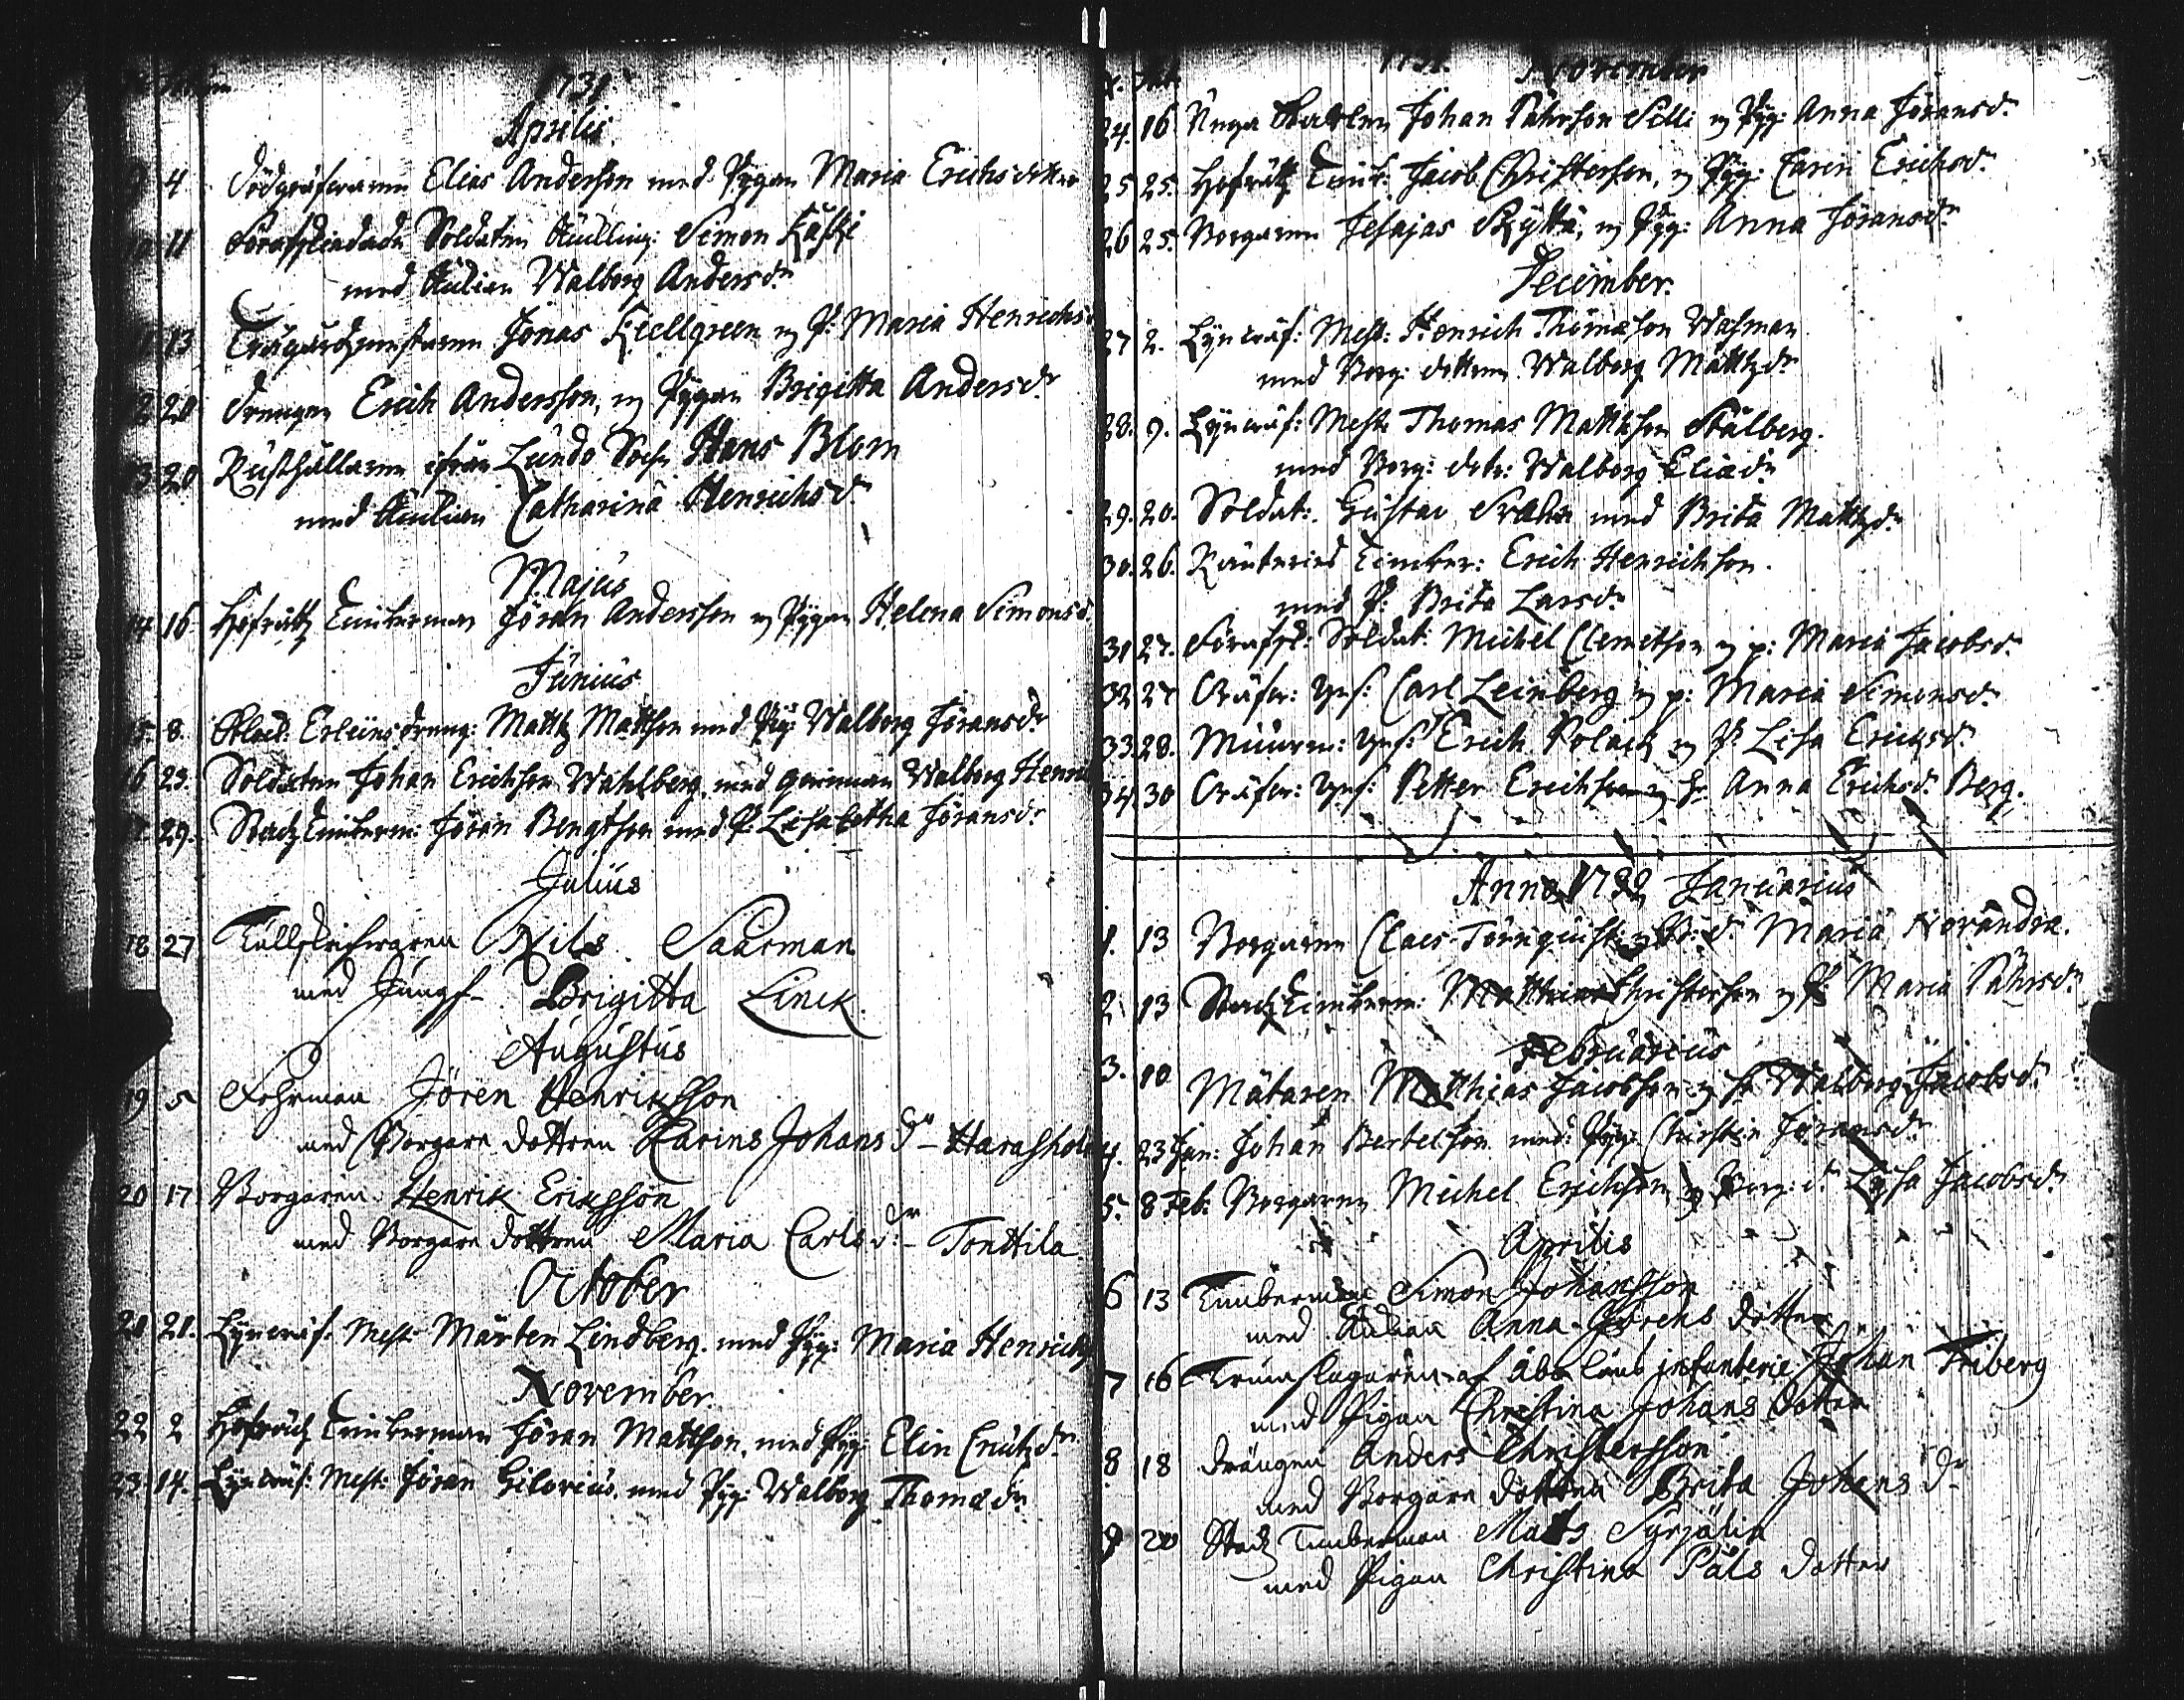 1731
Aprilis.
9 4 Dödgräfwaren Elias Andersson med Pigan Maria Erichsdotter
10 11 Förafskedade Soldaten Änckling: Simon Kåski
med Änckan Walborg Andersdr
11 13 Trägårdzmestaren Jonas Kiellgreen m P: Maria Henrichs
12 20 Drengen Erich Andersson, m Pygan Brigitta Andersdr
13 20 Rusthållaren ifrån Lundo Sochn Hans Blom
med Änckan Catharina Henrichsdr
Majus
14 16 Hofrätz Timberman Jöran Andersson m Pygan Helena Simonsd.
Junius
15 8. Erleins dreng: Mattz Mattson med Pig: Walborg Jöransdr
16 23. Soldaten Johan Erichson Wahlberg. med qwinnan Walborg Henri
17 29. Stadz Timberm: Jöran Bengtson med P: Lisabetha Jöransdr
Julius
18 27 Tullskrifwaren Nils Saarman
med Jungf- Brigitta Linck.
Augustus
19 5 Fohrman Jören Henriksson
med Borgare dottren Karins Johans dr- Harasholm
20 17 Borgaren Henrik Eriksson
med Borgare dottren Maria Carls dr- Tonttila
October
21 21. Lynwäf: Mest: Mårten Lindberg. med Pyg: Maria Henrichs
November.
22 2 Hofrätz Timberman Jöran Mattson, med Pyg: Elin Cnutzdr
23 14. Lynwäf: Mest: Jöran Gilovius, med Pyg: Walborg Thomædr
1731. November
24. 16 Unga Johan Påhrson Silli m Pyg: Anna Jöransdr
25 25. Hofrätz Timb: Jacob Christerson, m Pyg: Carin Erichsdr
26 25. Borgaren Jesajas Ryttä, m Pyg: Anna Jöransdr
December.
27 2. Lynwäf: Mest: Henrich Thomæson Wasman
med Borg: dottren Walborg Mattzdr
28. 9. Lynwäf: Mest: Thomas Mattson Stålberg.
med Borg: dotr: Walborg Eliædr
29. 20. Soldat: Gustav Svahn med Brita Mattzdr
30. 26. Timber: Erich Henrichson.
med P: Brita Larsdr
31 27. Förafsk: Soldat: Michel Clemetson m p: Maria Jacobsdr
32 27 Gräfw: Carl Leinberg m p: Maria Simonsdr
33 28. Muurm: Erich Polack m P: Lisa Erichsdr
34 30 Gräfw: Petter Erichson m Anna Erichsdr Berg.
Anno 1732 Januarius
1. 13 Borgaren Claes Törnquist m B: d: Maria Norandra.
2. 13 Stadz Timberm: Matthias Christerson m P: Maria Påhrsdr
Februarius
3. 10 Mätaren Matthias Jacobson m Walborg Jacobsdr
4. 23 Jan: Johan Bertelson med Pyg: Christin Jöransdr
5. 8 Feb: Borgaren Michel Erichson m Borg: d: Lysa Jacobsdr
Aprilis
6 13 Timberman Simon Johansson
med Änckan Anna Jörens dotter
7 16 Trumslagaren af Åbo läns infanterie Johan Friberg
med Pigan Christina Johans dotter
8 18 Drängen Anders Christersson
med Borgare dottren Brita Johans dr
9 20 Stadz Timberman Mats Syrjälin
med Pigan Christina Påls dotter